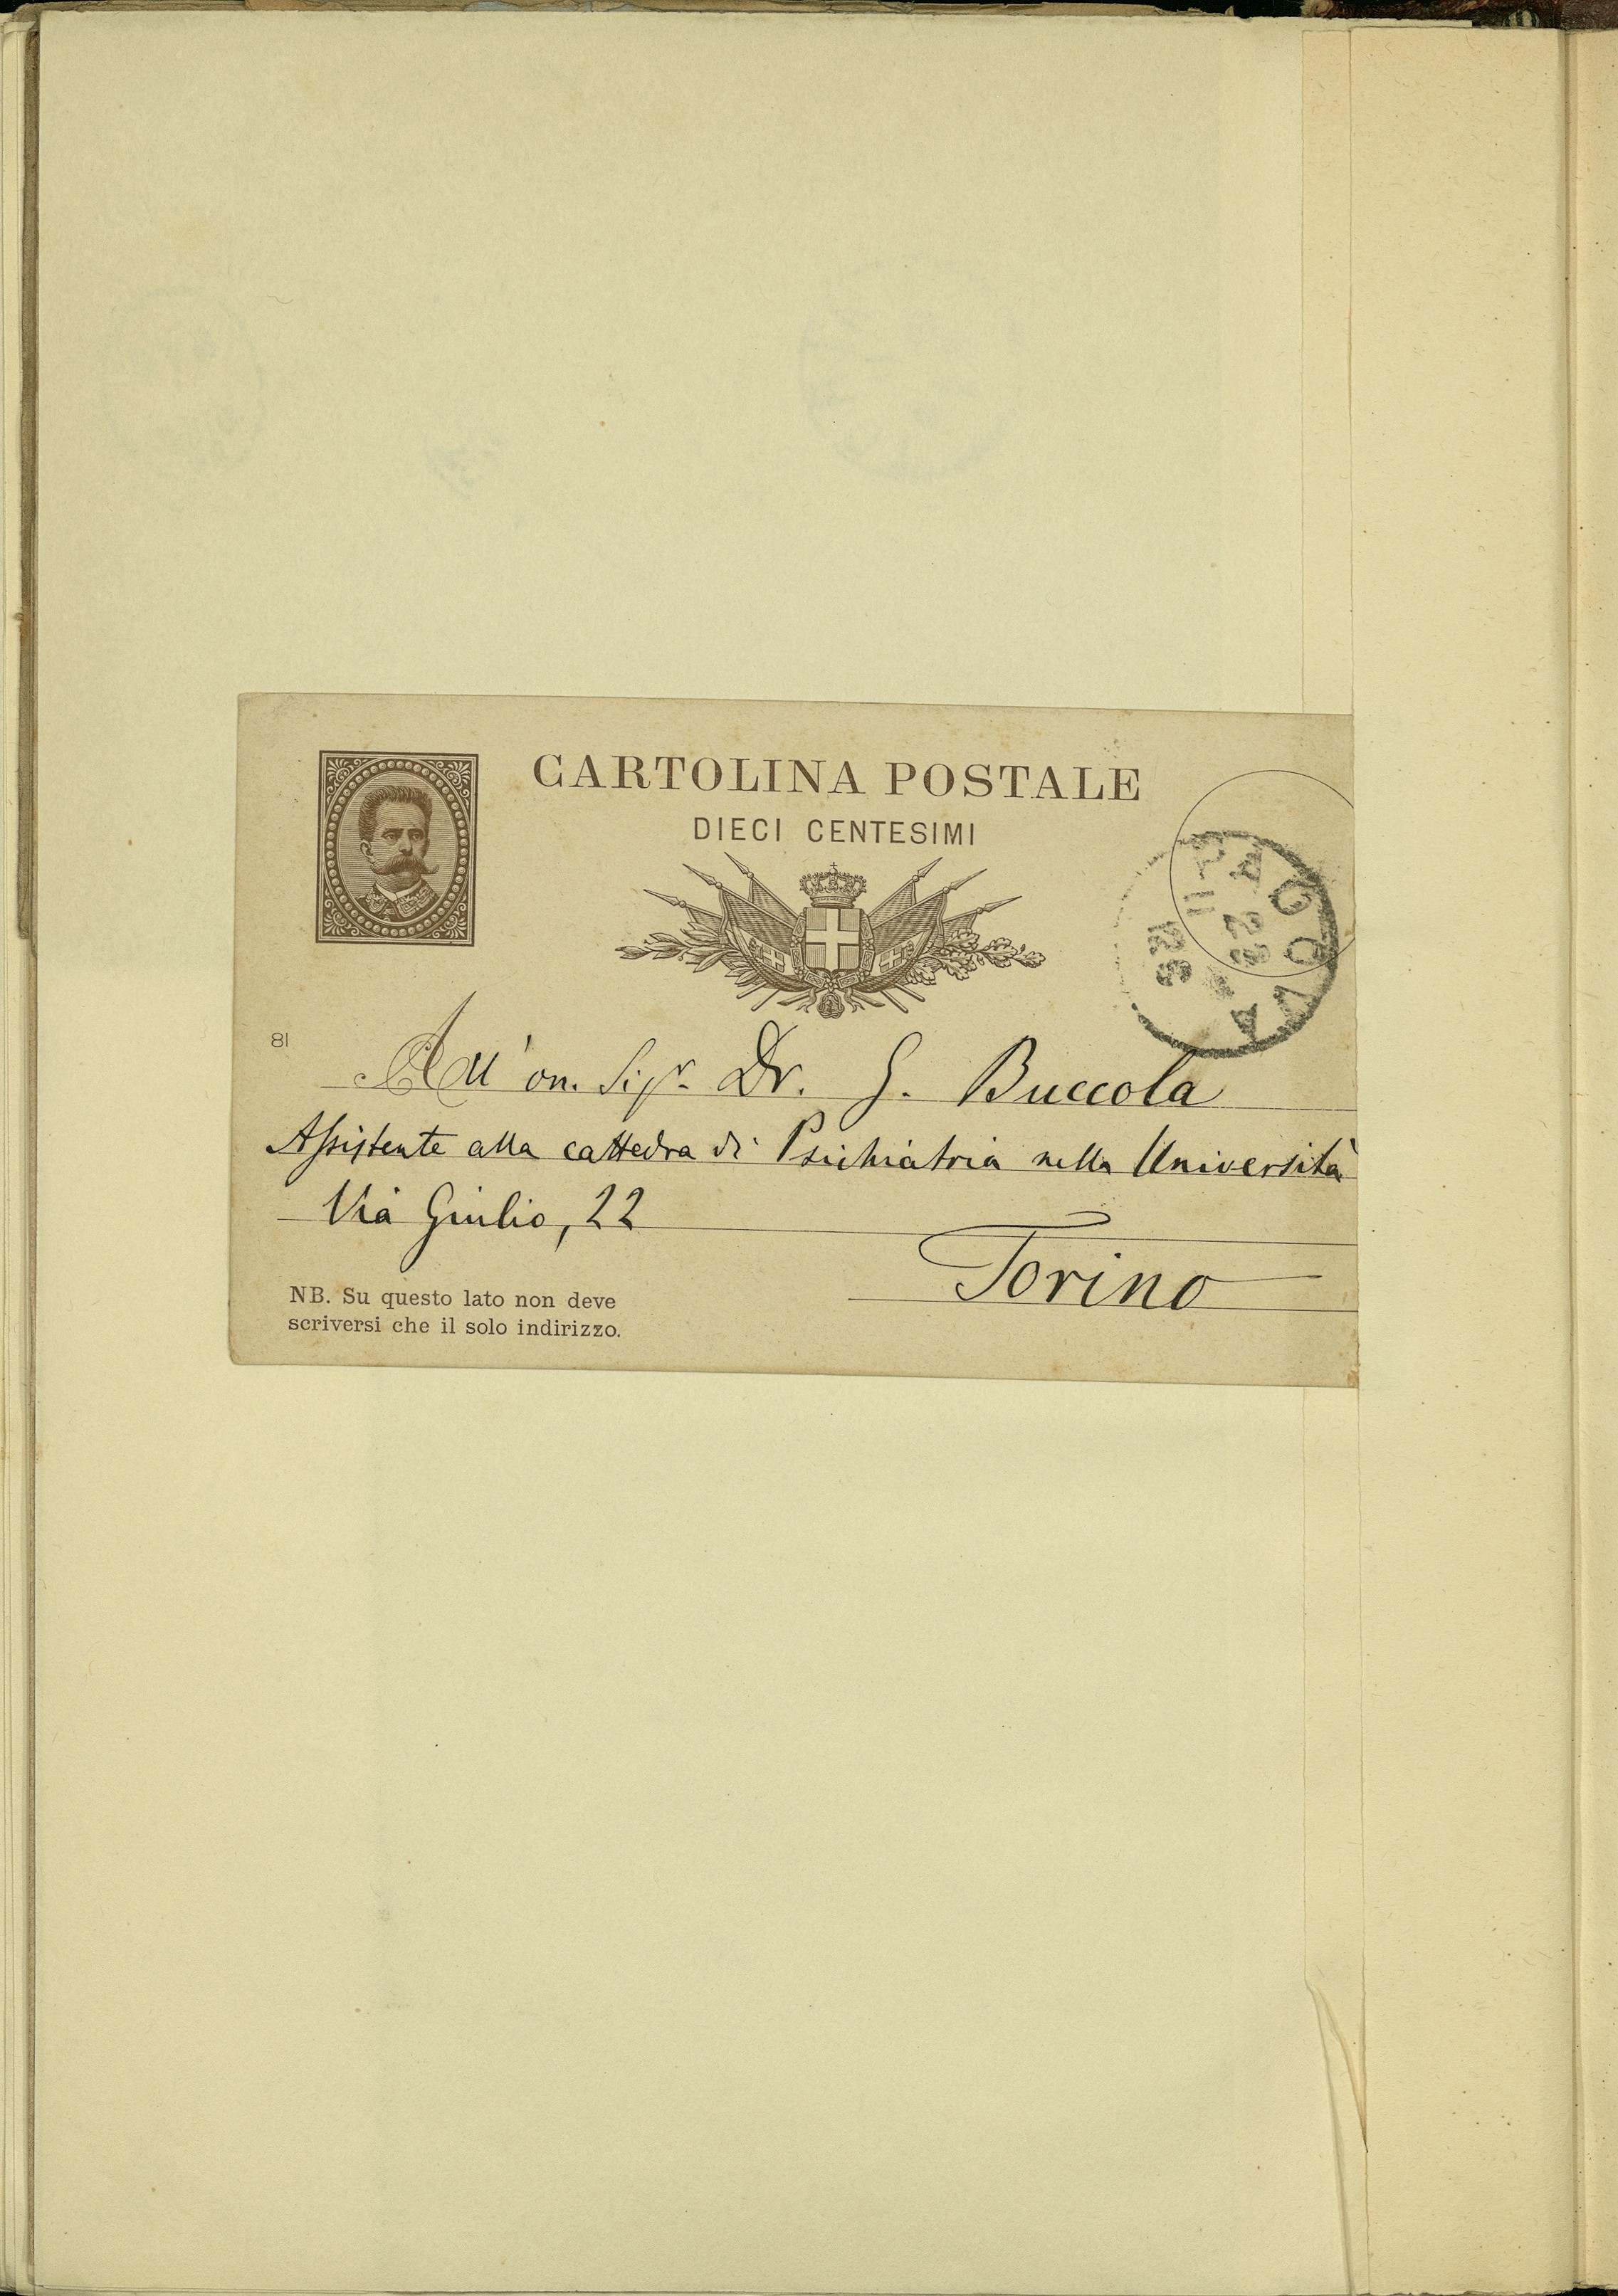 CARTOLINA POSTALE
DIECI CENTESIMI
PADOVA
11
81
All' on. Sigr. Dr. G. Buccola
Assistente alla cattedra di Psichiatria nella Università
Via Giulio, 22
Torino
NB. Su questo lato non deve
scriversi che il solo indirizzo.